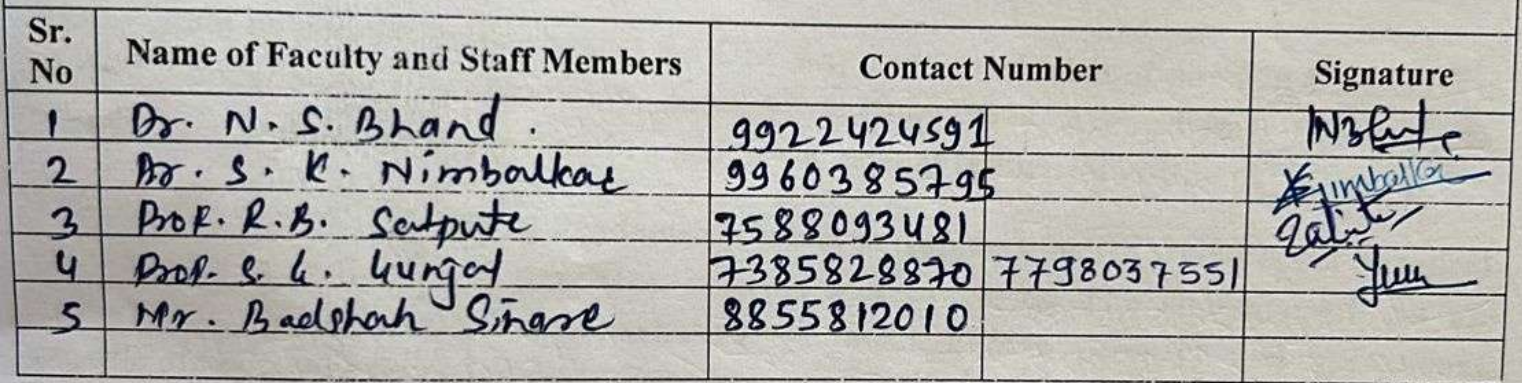 Sr. No Name of Faculty and Staff Members Contact Number Signature
1 Dr. N. S. Bhand. 9922424591
2 Dr. S. K. Nimbalkar 9960385795
3 Prof. R. B. Satpute 7588093481
4 Prof. S. 7385828870 7798037551
5 Mr. Badshah Sinare 8855812010